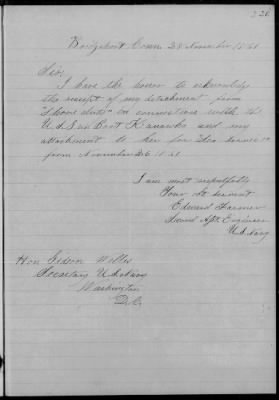 226
Bridgeport Conn 28 November 1861
Sir,
I have the honor to acknowledge
the receipt of my detachment from
"Shore duty" in connection with the
U.S. Gun Boat Kanawha and my
attachment to her for Sea Service
from November 26 1861.
I am most respectfully
Your Obt. servant
Edward Farmer
Second Asst. Engineer
U.S. Navy
Hon Gideon Welles
Secretary U.S. Navy
Washington
D.C.